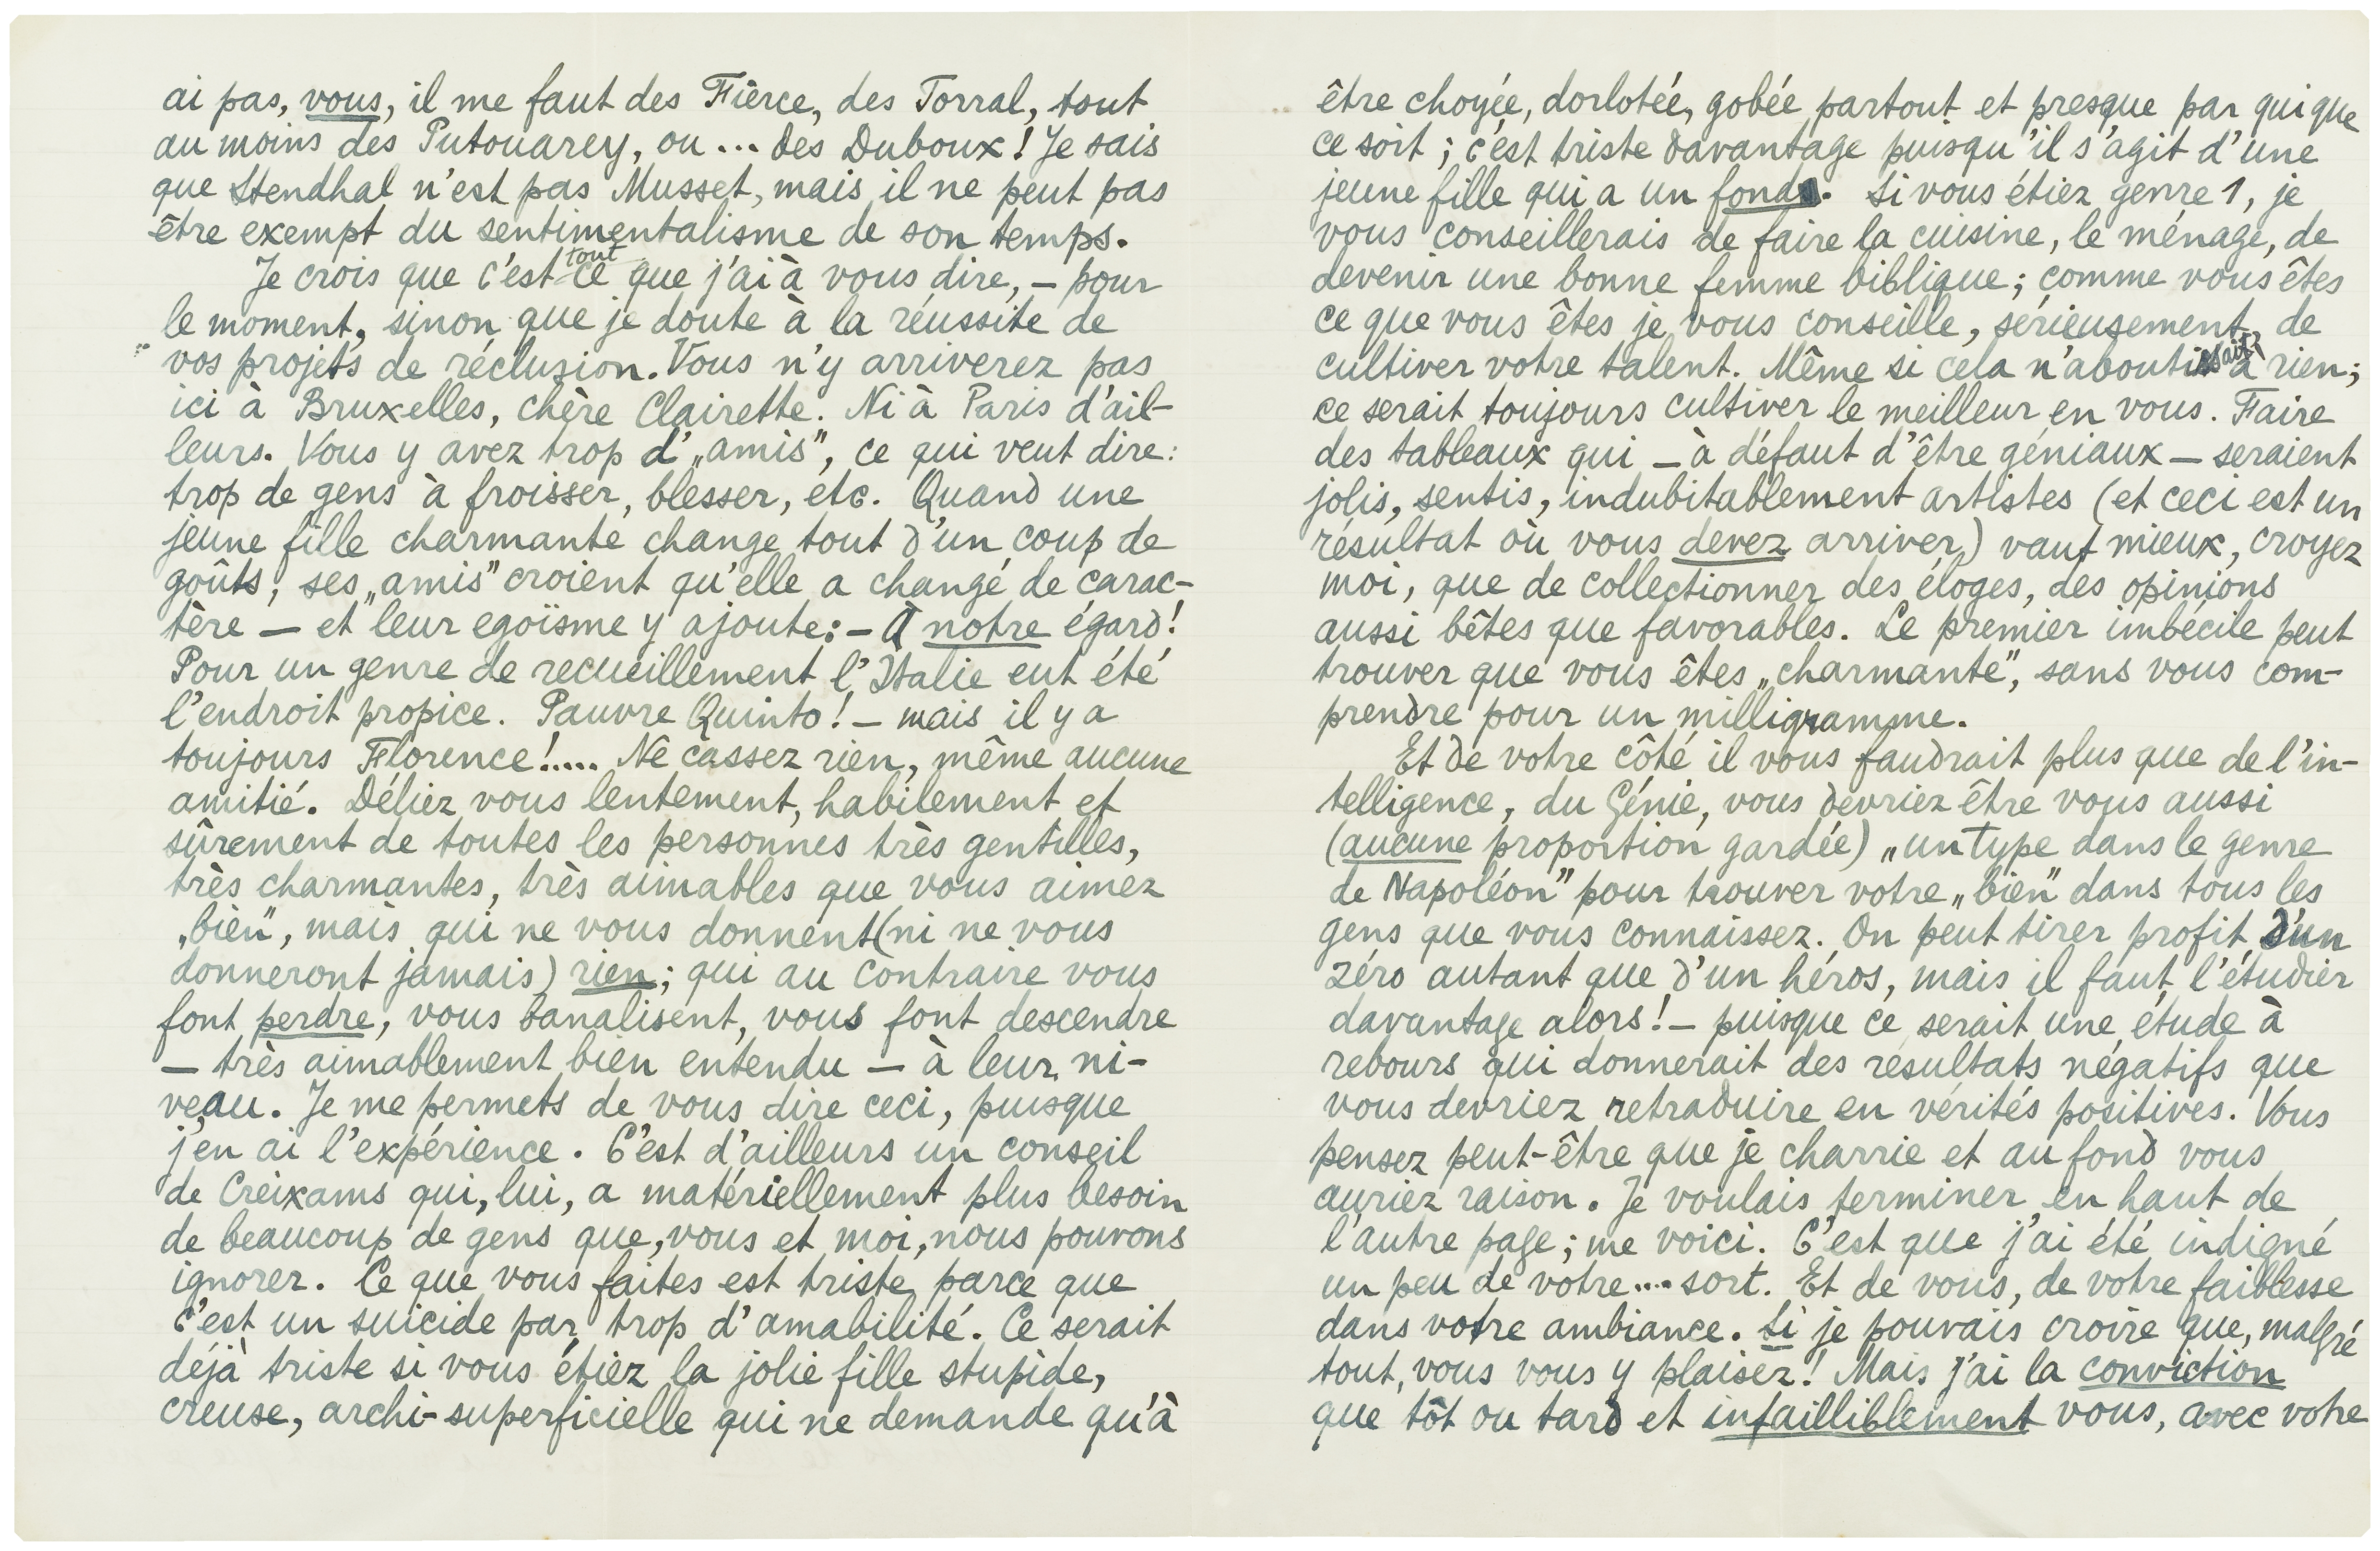 ai pas, vous, il me faut des Fièrce, des Torral, tout
au moins des Putouarey, ou ... des Duboux! Je sais
que Stendhal n'est pas Musset, mais il ne peut pas
être exempt du sentimentalisme de son temps.
Je crois que c'est tout ce que j'ai à vous dire, – pour
le moment, sinon que je doute à la réussite de
vos projets de réclusion. Vous n'y arriverez pas
ici à Bruxelles, chère Clairette. Ni à Paris d'ail-
leurs. Vous y avez trop d'„amis", ce qui veut dire:
trop de gens à froisser, blesser, etc. Quand une
jeune fille charmante change tout d'un coup de
goûts, ses „amis" croient qu'elle a changé de carac-
tère — et leur egoïsme y ajoute: – à notre égard!
Pour un genre de recueillement l'Italie eut été
l'endroit propice. Pauvre Quinto! – mais il y a
toujours Florence!.... Ne cassez rien, même aucune
amitié. Déliez vous lentement, habilement et
sûrement de toutes les personnes très gentilles,
très charmantes, très aimables que vous aimez
„bien", mais qui ne vous donnent (ni ne vous
donneront jamais) rien; qui au contraire vous
font perdre, vous banalisent, vous font descendre
— très aimablement bien entendu — à leur ni-
veau. Je me permets de vous dire ceci, puisque
j'en ai l'expérience. C'est d'ailleurs un conseil
de Creixams qui, lui, a matériellement plus besoin
de beaucoup de gens que, vous et moi, nous pouvons
ignorer. Ce que vous faites est triste parce que
c'est un suicide par trop d'amabilité. Ce serait
déjà triste si vous étiez la jolie fille stupide,
creuse, archi-superficielle qui ne demande qu'à
être choyée, dorlotée, gobée partout et presque par qui que
ce soit; c'est triste davantage puisqu'il s'agit d'une
jeune fille qui a un fond. Si vous étiez genre 1, je
vous conseillerais de faire la cuisine, le ménage, de
devenir une bonne femme biblique; comme vous êtes
ce que vous êtes je vous conseille, sérieusement, de
cultiver votre talent. Même si cela n'aboutissait à rien;
ce serait toujours cultiver le meilleur en vous. Faire
des tableaux qui — à défaut d'être géniaux — seraient
jolis, sentis, indubitablement artistes (et ceci est un
résultat où vous devez arriver) vaut mieux, croyez
moi, que de collectionner des éloges, des opinions
aussi bêtes que favorables. Le premier imbécile peut
trouver que vous êtes „charmante", sans vous com-
prendre pour un milligramme.
Et de votre côté il vous faudrait plus que de l'in-
telligence, du Génie, vous devriez être vous aussi
(aucune proportion gardée) „un type dans le genre
de Napoléon" pour trouver votre „bien" dans tous les
gens que vous connaissez. On peut tirer profit d'un
zéro autant que d'un héros, mais il faut l'étudier
davantage alors! – puisque ce serait une étude à
rebours qui donnerait des résultats négatifs que
vous devriez retraduire en vérités positives. Vous
pensez peut-être que je charrie et au fond vous
auriez raison. Je voulais terminer en haut de
l'autre page; me voici. C'est que j'ai été indigné
un peu de votre.... sort. Et de vous, de votre faiblesse
dans votre ambiance. Si je pouvais croire que, malgré
tout, vous vous y plaisez! Mais j'ai la conviction
que tôt ou tard et infailliblement vous, avec votre